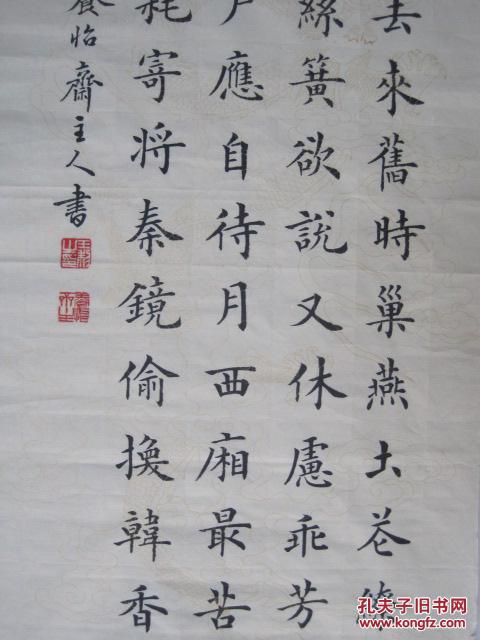 去來舊時巢燕土花繚
絲簧欲說又休慮乖芳
户應自待月西廂最苦
耗寄将秦鏡偷換韓香
養怡齋主人書
孔夫子旧书网